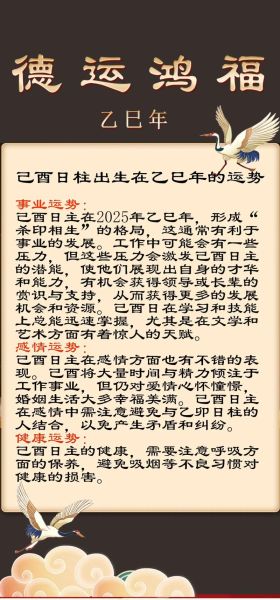 德运鸿福
乙巳年
己酉日柱出生在乙巳年的运势
事业运势:
己酉日主在2025年乙巳年，形成“
杀印相生”的格局，这通常有利于
事业的发展。工作中可能会有一些
压力，但这些压力会激发己酉日主
的潜能，使他们展现出自身的才华
和能力，有机会获得领导或长辈的
赏识与支持，从而获得更多的发展
机会和资源。己酉日在学习和技能
上总能迅速掌握，尤其是在文学和
艺术方面有着惊人的天赋。
感情运势:
己酉日主在感情方面也有不错的表
现。己酉将大量时间与精力倾注于
工作事业，但仍对爱情心怀憧憬，
婚姻生活大多幸福美满。己酉日主
在感情中需注意避免与乙卯日柱的
人结合，以免产生矛盾和纠纷。
健康运势:
己酉日主的健康，需要注意呼吸方
面的保养，避免吸烟等不良习惯对
健康的损害。